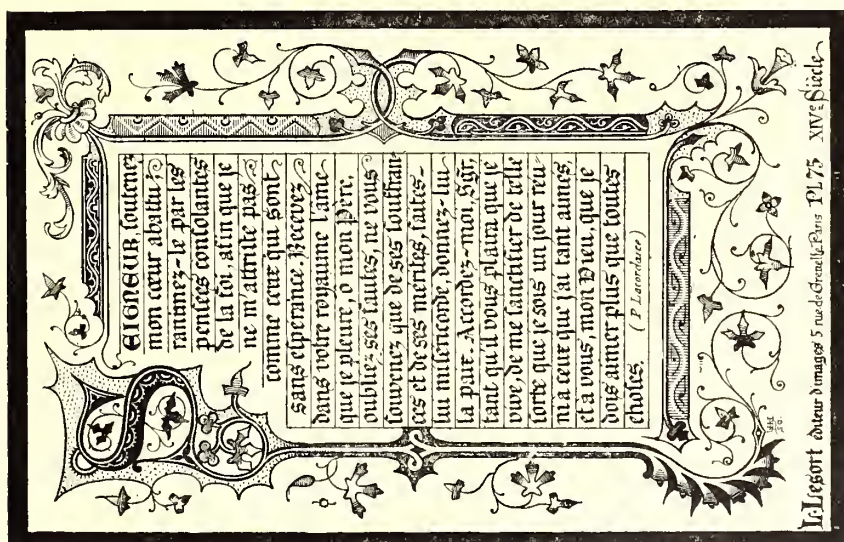 SEIGNEUR, soutenez
mon cœur abattu,
ranimez-le par les
pensées consolantes
de la foi, afin que je
ne m'attriste pas
comme ceux qui sont
sans espérance. Recevez
dans votre royaume l'ame
que je pleure, o mon Père,
oubliez ses fautes, ne vous
souvenez que de ses souffran-
ces et de ses mérites, faites-
lui miséricorde, donnez-lui
la paix. Accordez-moi, Sgr,
tant qu'il vous plaira que je
vive, de me sanctifier de telle
sorte que je sois un jour réu-
ni à ceux que j'ai tant aimés,
et à vous, mon Dieu, que je
dois aimer plus que toutes
choses. (P. Lacordaire)
L. Lesort éditeur d'images 5 rue de Grenelle Paris PL 75 XIVe Siècle